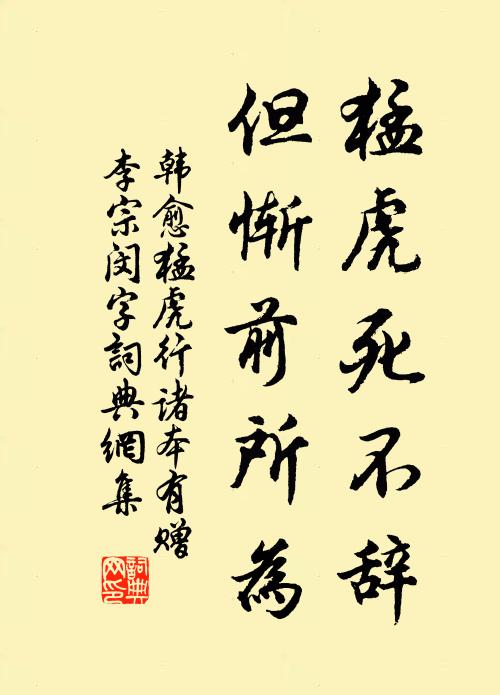 猛虎死不辞
但惭前所為
韩愈猛虎行诸本有赠
李宗闵字詞典網集
詞典
网印